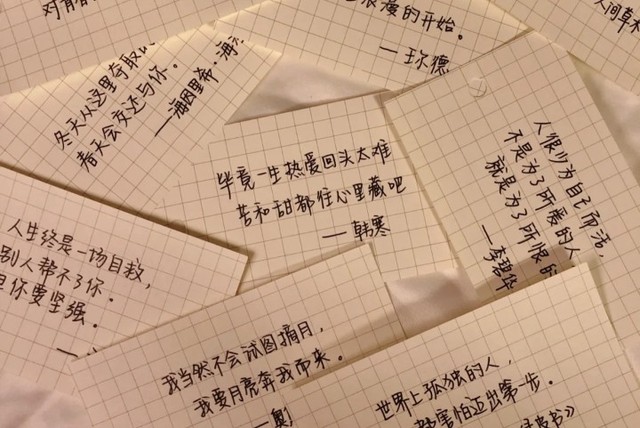 浪漫的开始。
人间草木
冬天从这里夺取
春天会交还与你。
毕竟一生热爱回头太难
苦和甜都往心里藏吧
——韩寒
人很少为自己而活，
不是为了所爱的人
就是为了所恨的
——李碧华
人生终是一场自救，
别人帮不了你。
但你要坚强。
我当然不会试图摘月，
我要月亮奔我而来。
——奥
世界上孤独的人，
都害怕迈出第一步。